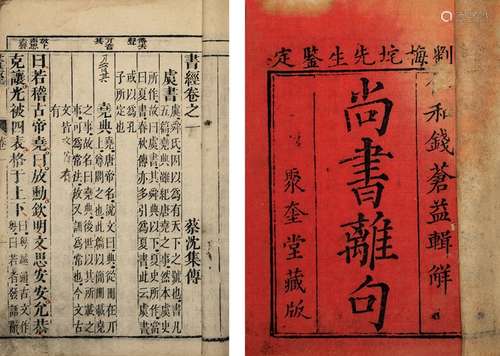 劉梅垞先生鑒定
和錢蒼益輯解
尚書離句
聚奎堂藏版
書經卷之一
蔡沈集傳
虞書
虞舜氏因以為有天下之號也書凡
五篇堯典雖紀唐堯之事然本虞史
所作故曰虞書其舜典以下夏史所作當
曰夏書春秋傳亦多引為夏書此云虞書
或以為孔
子所定也
堯典
堯唐帝名說文曰典從冊在丌
上尊閣之也此篇以簡冊載堯
之事故名曰堯典後世以其所載之事
可為常法故又訓為常也今文古
文皆有
曰若稽古帝堯曰放勳欽明文思安安允恭
克讓光被四表格于上下
曰粵越通古文作
粵曰若者發語辭